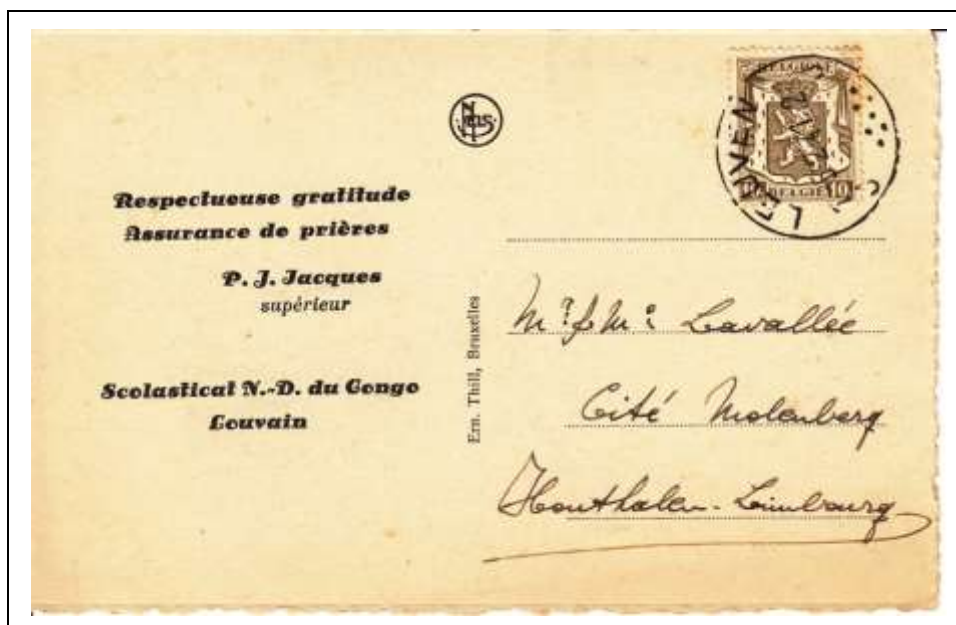 Nels
Respectueuse gratitude
Assurance de prières
P. J. Jacques
supérieur
Scolasticat N.-D. du Congo
Louvain
Ern. Thill, Bruxelles
BELGIQUE
10 BELGIË 10
LEUVEN
Lavallée
Cité Molenberg
Houthalen-Limbourg